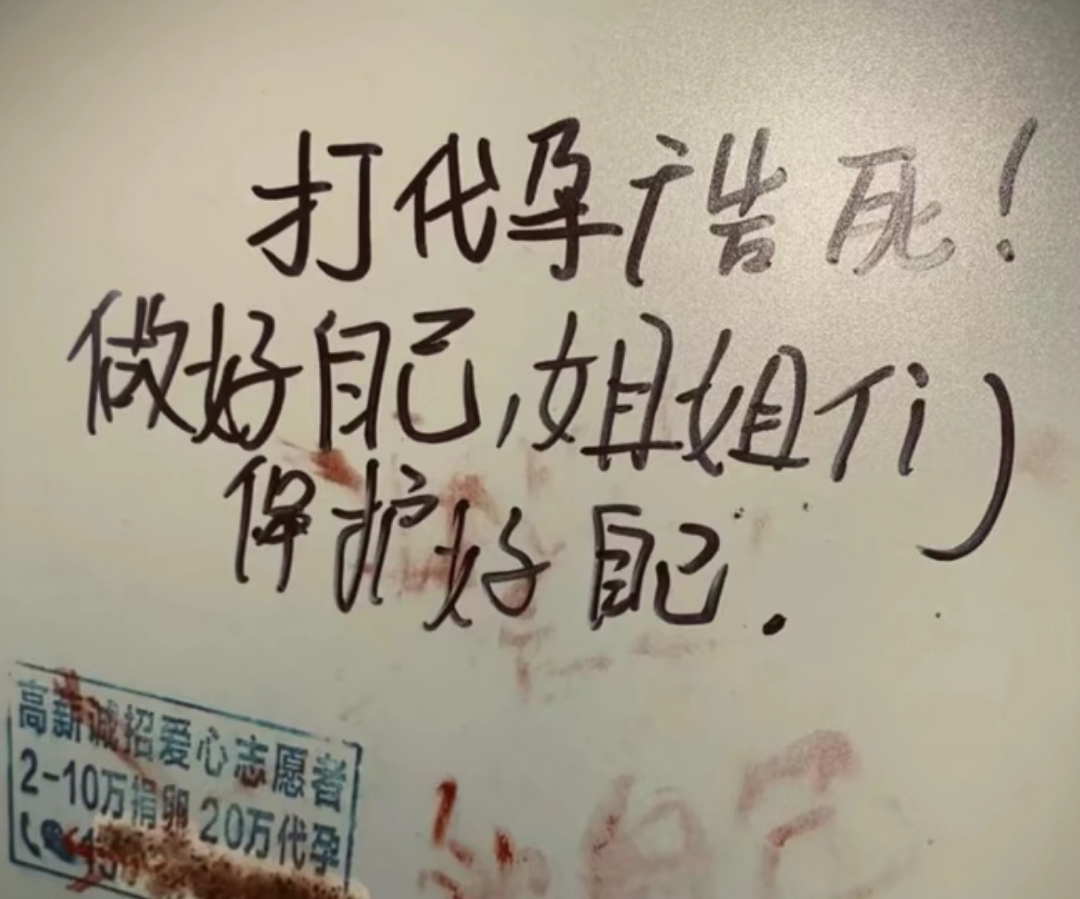 打代孕广告死!
做好自己,姐姐们
保护好自己.
高新诚招爱心志愿者
2-10万捐卵 20万代孕
自己